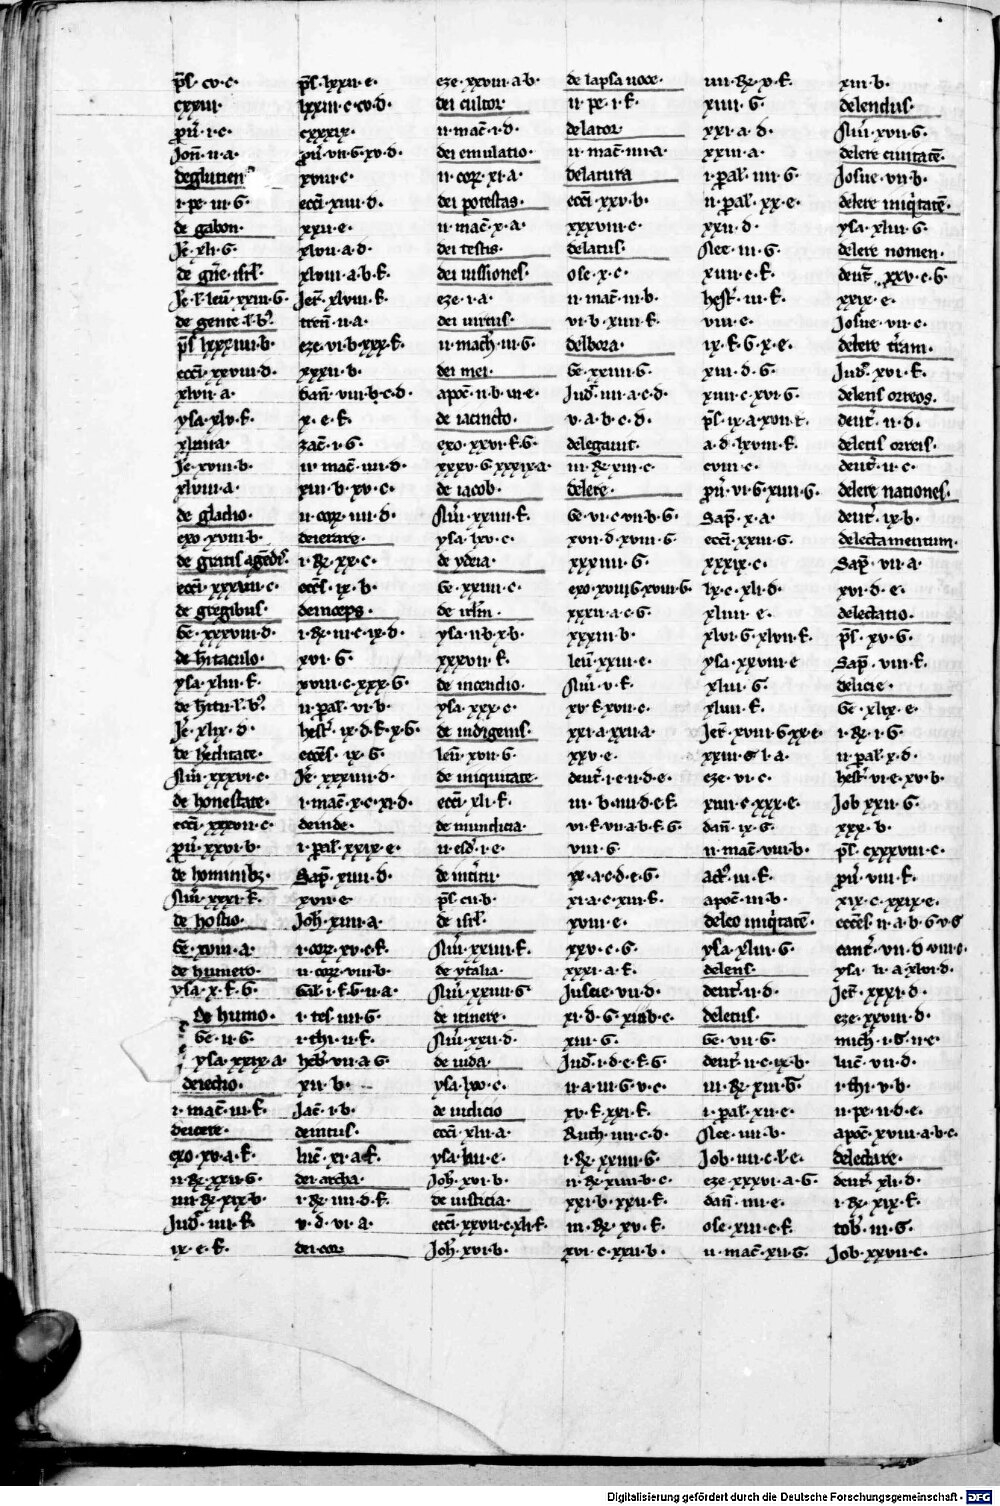 ps̄. cv. c.
cxxiii.
pͬu. i. c.
Jon̄. ii. a.
deglutien
i. pe. iii. G.
de gabon.
Je. xli. G.
de gn̄e isrl.
Je. l. leū. xxiii. G.
de gente. l. b.
ps̄. lxxxiiii. b.
ecci. xxviii. d.
xlvii. a.
ysa. xlv. f.
Je. xviii. b.
xlviii. a.
de gladio.
exo. xviii. b.
ecci. xxxvii. c.
de gregibus.
Ge. xxxviii. d.
de hitaculo.
ysa. xliii. f.
Je. xlix. d.
de hēditate.
Nūi. xxxvi. c.
de honestate.
ecci. xxxvii. c.
pͬu. xxvi. b.
de hominibꝫ.
Nūi. xxxi. f.
de hostio.
Ge. xviii. a.
de humero.
ysa. x. f. G.
De humo.
Ge. ii. G.
ysa. xxix. a.
deiectio.
i. mac̄. iii. f.
deicere.
exo. xv. a. f.
ii. Rꝫ. xxii. G.
iiii. Rꝫ. xix. b.
Jud. iiii. f.
ix. e. f.
ps̄. lxxii. e.
lxxiii. c. cv. d.
cxxxix.
pͬu. vii. G. xv. d.
xviii. c.
ecci. xiiii. d.
xxii. e.
xlvii. a. d.
xlviii. a. b. f.
Jer̄. xlviii. f.
tren̄. ii. a.
eze. vi. b. xxx. f.
xxxii. b.
dan̄. viii. b. c. d.
x. e. f.
zac̄. i. G.
ii. mac̄. iiii. d.
xiii. b. xv. c.
ii. coꝝ. iiii. d.
deierare.
i. Rꝫ. xx. c.
eccēs. ix. b.
deinceps.
i. Rꝫ. iii. c. ix. d.
xvi. G.
xviii. c. xxx. G.
ii. pal̄. vi. b.
hest̄. ix. d. f. x. G.
eccēs. ix. G.
Je. xxxiiii. d.
i. mac̄. x. c. xi. d.
deinde.
i. pal̄. xxix. e.
Sap̄. xiiii. d.
xvii. e.
Joh̄. xiii. a.
i. coꝝ. xv. e. f.
ii. coꝝ. viii. b.
Gal̄. i. f. G. ii. a.
i. tes. iiii. G.
i. thi. ii. f.
heb̄. vii. a. G.
xii. b.
Jac̄. i. b.
deintus.
luc̄. xi. a. f.
dei archa.
i. Rꝫ. iiii. d. f.
v. d. vi. a.
dei coꝝ
eze. xxviii. a. b.
dei cultor.
ii. mac̄. i. d.
dei emulatio.
ii. coꝝ. xi. a.
dei potestas.
ii. mac̄. x. a.
dei testis.
dei uissiones.
eze. i. a.
dei uirtus.
ii. mach̄. iii. G.
dei mei.
apoc̄. ii. b. iii. e.
de iacincto.
exo. xxvi. f. G.
xxxv. G. xxxix. a.
de iacob.
Nūi. xxiiii. f.
ysa. lxv. c.
de ydria.
Ge. xxiiii. c.
de irl̄m.
ysa. ii. b. x. b.
xxxvii. f.
de incendio.
ysa. xxx. c.
de indigenis.
leū. xvii. G.
de iniquitate.
ecci. xli. f.
de inmundicia.
ii. esd̄. i. e.
de initu.
ps̄. cii. b.
de isrl̄.
Nūi. xxiiii. f.
de ytalia.
Nūi. xxiiii. G
de itinere.
Nūi. xxii. d.
de iuda.
ysa. lxv. c.
de iudicio
ecci. xlii. a.
ysa. liii. e.
Joh̄. xvi. b.
de iusticia.
ecci. xxvii. c. xli. f.
Joh̄. xvi. b.
de lapsa uoce.
ii. pe. i. f.
delator
ii. mac̄. iiii. a.
delatura
ecci. xxv. b.
xxxviii. c.
delatus.
ose. x. c.
ii. mac̄. iii. b.
vi. b. xiiii. f.
delbora.
Ge. xxiiii. G.
Jud̄. iiii. a. c. d.
v. a. b. c. d.
delegauit.
iii. Rꝫ. xiii. c.
delere.
Ge. vi. c. vii. b. G.
xvii. d. xviii. G.
xxxiiii. G.
exo. xvii. G. xviii. G.
xxxii. a. c. G.
xxxiii. b.
leū. xxiii. e.
Nūi. v. f.
xv. f. xvii. c.
xxi. a. xxii. a.
xxv. e.
deut̄. i. e. ii. d. e.
iii. b. iiii. d. e. f.
vi. f. vii. a. b. f. G.
viii. G.
ix. a. c. d. e. G.
xi. a. c. xiii. f.
xviii. e.
xxv. c. G.
xxxi. a. f.
Josue. vii. d.
xiii. G.
Jud̄. i. d. e. f. G.
ii. a. iii. G. v. c.
xv. f. xxi. f.
Ruth. iiii. c. d.
i. Rꝫ. xxiiii. G.
ii. Rꝫ. xiiii. b. c.
xxi. b. xxii. f.
iii. Rꝫ. xv. f.
xvi. c. xxii. b.
iiii. Rꝫ. x. f.
xiiii. G.
xxi. a. d.
xxiii. a.
i. pal̄. iiii. G.
ii. pal̄. xx. e.
xxii. d.
Nee. iii. G.
xiii. e. f.
hest̄. iii. f.
viii. e.
ix. f. G. x. e.
xiii. d. G.
xiiii. c. xvi. G.
ps̄. ix. a. xvii. f.
a. d. lxviii. f.
cviii. c.
pͬu. vi. G. xiiii. G.
Sap̄. x. a.
ecci. xxiii. G.
xxxix. c.
lx. c. xli. d.
xliiii. e.
xlvi. G. xlvii. f.
ysa. xxviii. e
xliii. G.
xlviii. f.
Jer̄. xviii. G. xx. e.
xxiii. G. l. a.
eze. vi. c.
xiiii. c. xxx. e.
dan̄. ix. G.
ii. mac̄. viii. b.
act̄. iii. f.
apoc̄. iii. b.
deleo iniq̄tatē.
ysa. xliii. G.
delens.
deut̄. ii. d.
deletus.
Ge. vii. G.
deut̄. ii. c. ix. b.
iii. Rꝫ. xiii. G.
i. pal̄. xii. e.
Nee. iiii. b.
Job. iiii. c. l. e.
eze. xxxvi. a. G.
dan̄. iiii. e.
ose. xiii. e. f.
ii. mac̄. xii. G.
xiii. b.
delendus.
Nūi. xvii. G.
delere ciuitatē.
Josue. vii. b.
delere iniq̄tatē.
ysa. xliii. G.
delere nomen.
deut̄. xxv. c. G.
xxix. e.
Josue. vii. c.
delere t̄ram.
Jud̄. xvi. f.
delens ortos.
deut̄. ii. d.
deletis orreis.
deut̄. ii. c.
delere nationes.
deut̄. ix. b.
delectamentum.
Sap̄. vii. a.
xvi. d. e.
delectatio.
ps̄. xv. G.
Sap̄. viii. f.
delicie.
Ge. xlix. e.
i. Rꝫ. i. G.
ii. pal̄. x. d.
hest̄. vi. e. xv. b.
Job. xxii. G.
xxx. b.
ps̄. cxxxviii. c.
pͬu. viii. f.
xix. c. xxix. e.
eccēs. ii. a. b. G. v. G
cant̄. vii. d. viii. c.
ysa. li. a. xlvi. d.
Jer̄. xxxi. d.
eze. xxviii. d.
mich̄. i. G. ii. e.
luc̄. vii. d.
i. thi. v. b.
ii. pe. ii. d. e.
apoc̄. xviii. a. b. c.
delectare.
deut̄. xli. d.
i. Rꝫ. xix. f.
tob̄. iii. G.
Job. xxvii. c.
Digitalisierung gefördert durch die Deutsche Forschungsgemeinschaft - DFG